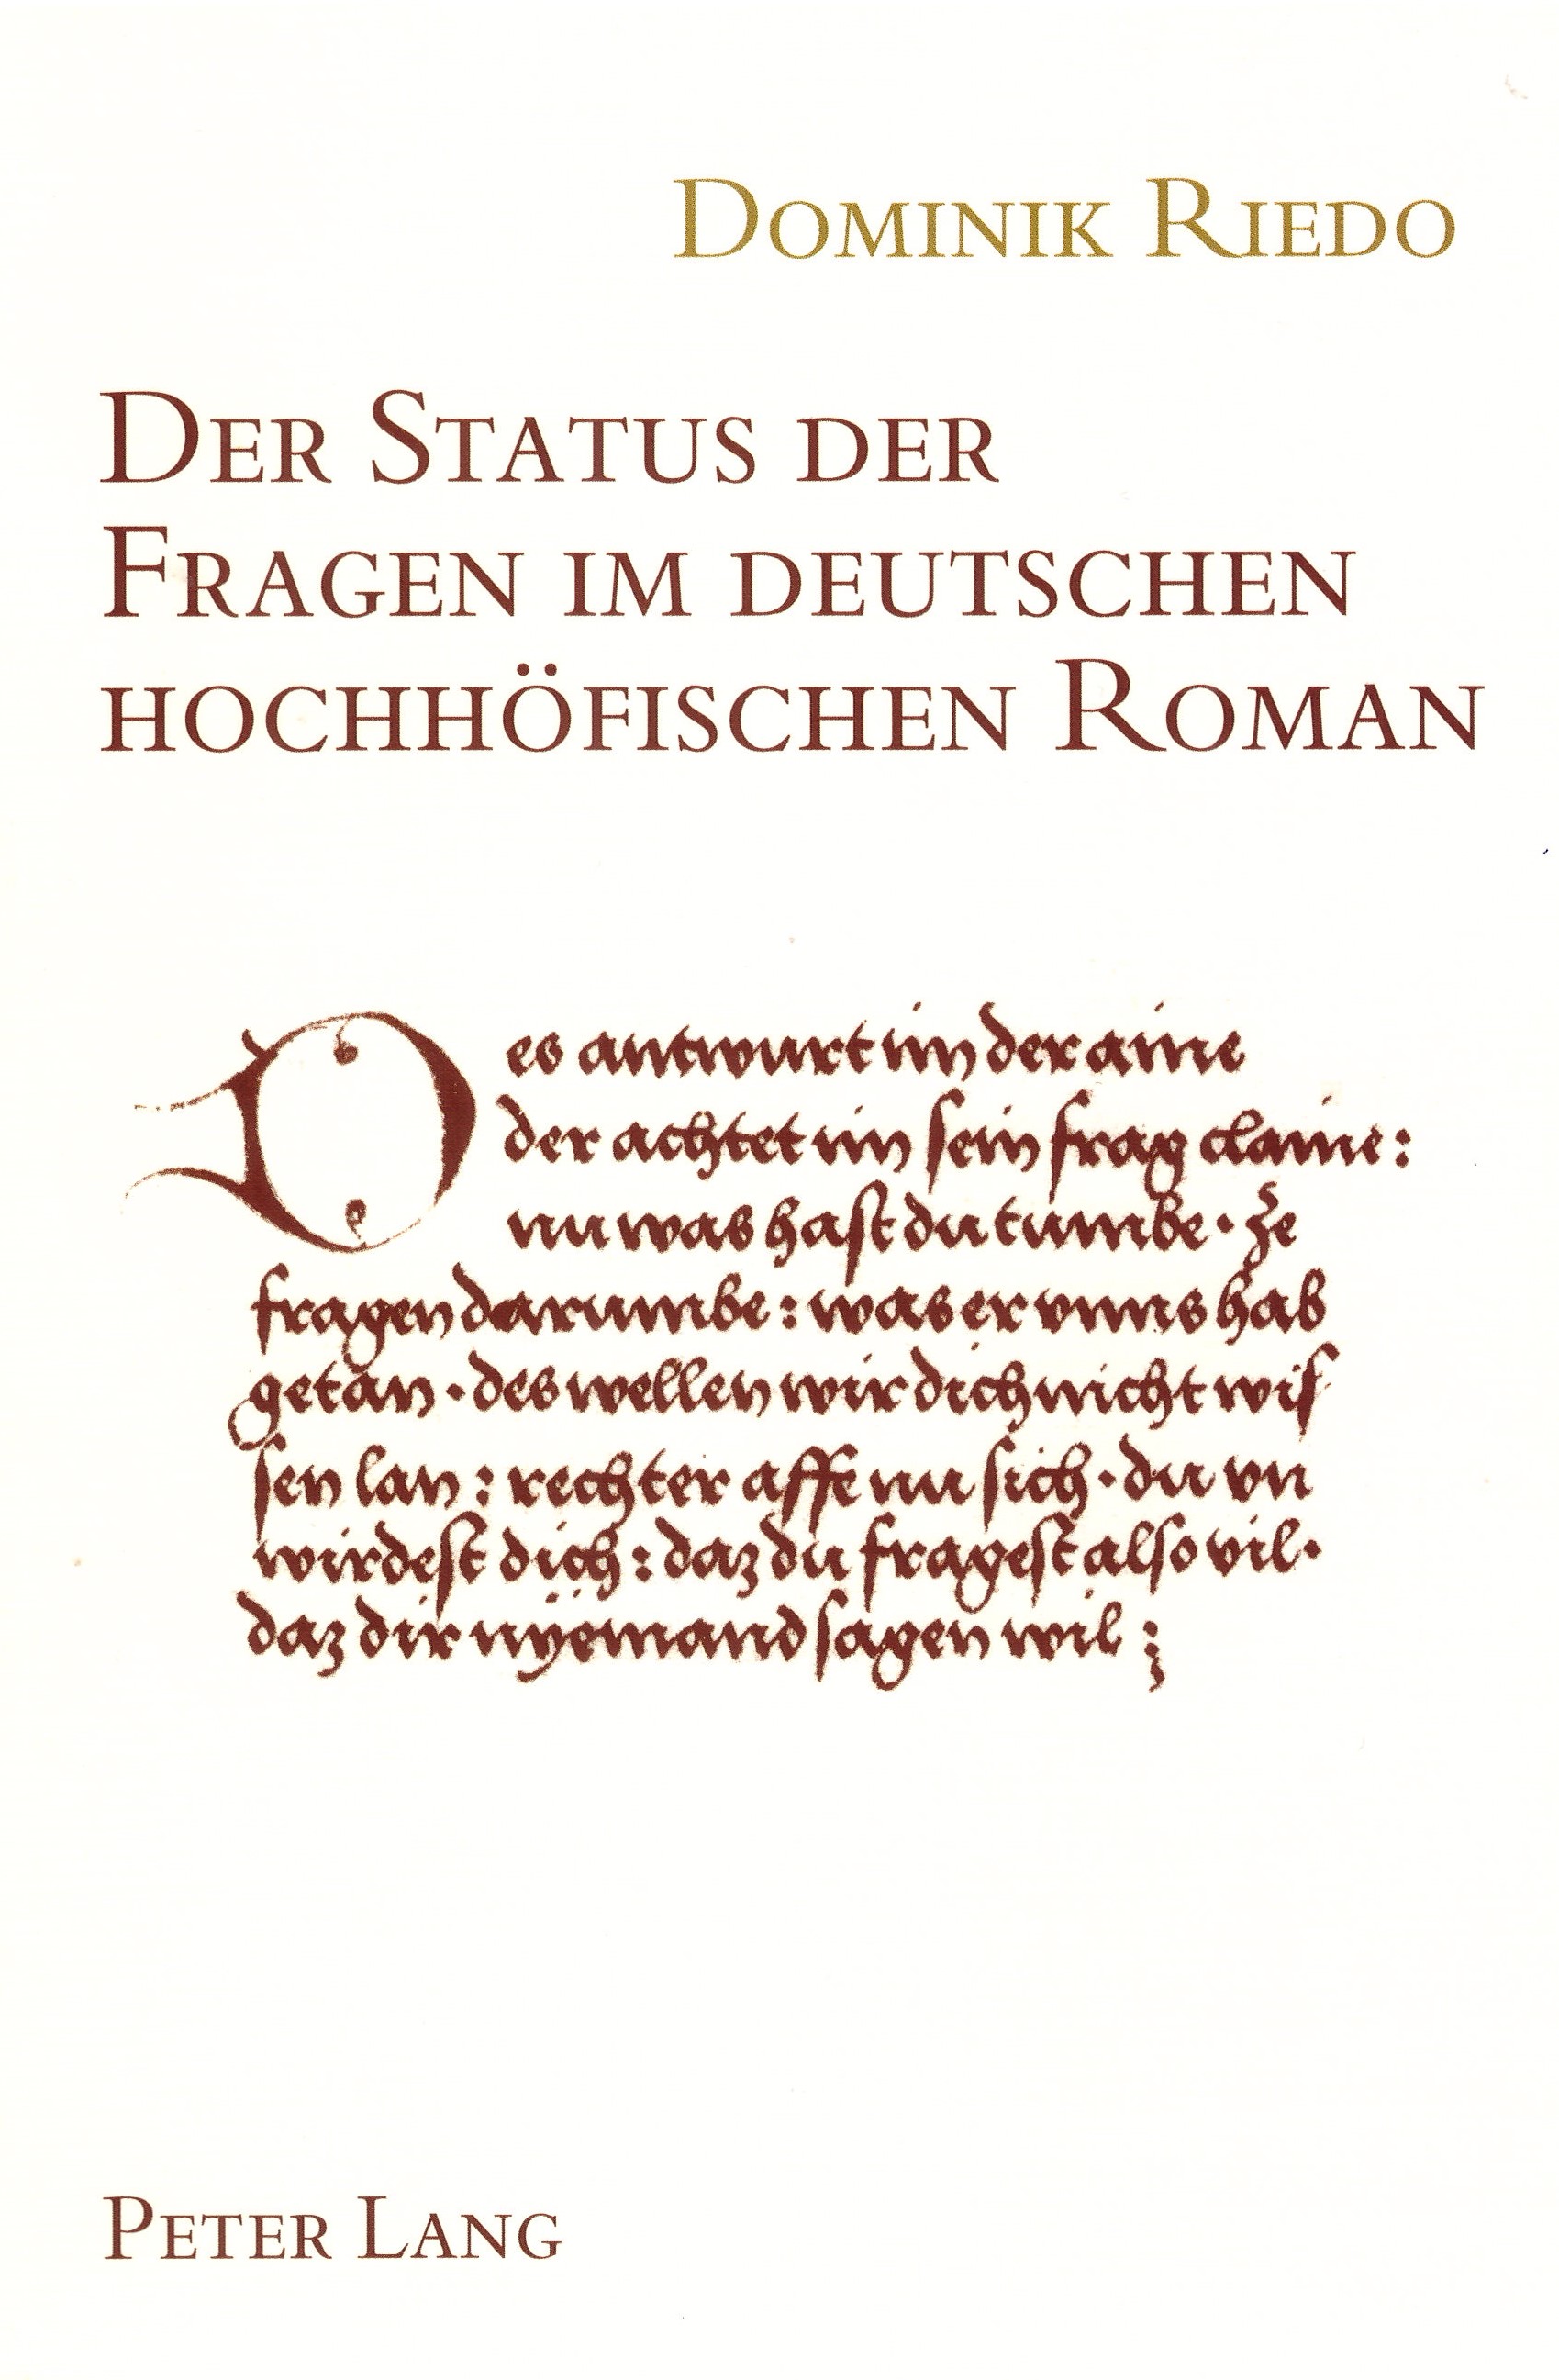 Dominik Riedo
Der Status der
Fragen im deutschen
hochhöfischen Roman
Des antwurt im der aine
der achtet im sein frag claine:
nu was hast du tumbe · ze
fragen darumbe : was er vnns hab
getan · des wellen wir dich nicht wiſ
ſen lan : rechter affe nu ſich · du vn
wirdeſt dich : daz du frageſt alſo vil ·
daz dir nÿemand ſagen wil :
Peter Lang